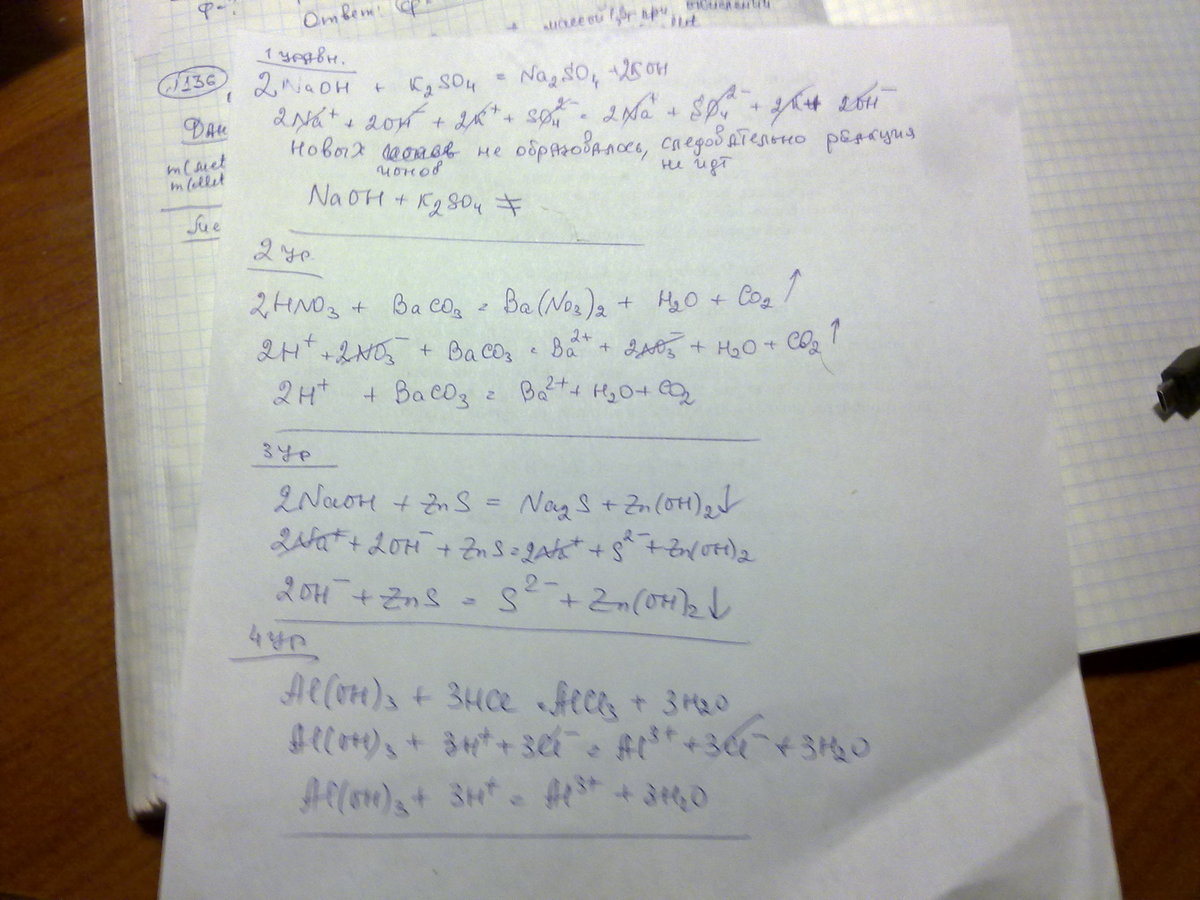 Ответ:
массой
136
Дан
1 уравн.
2NaOH + K₂SO₄ = Na₂SO₄ + 2KOH
2Na⁺ + 2OH⁻ + 2K⁺ + SO₄²⁻ = 2Na⁺ + SO₄²⁻ + 2K⁺ 2OH⁻
Новых не образовалось, следовательно реакция
ионов не идт
NaOH + K₂SO₄ ≠
2 ур
2HNO₃ + BaCO₃ = Ba(NO₃)₂ + H₂O + CO₂ ↑
2H⁺ + 2NO₃⁻ + BaCO₃ = Ba²⁺ + 2NO₃⁻ + H₂O + CO₂ ↑
2H⁺ + BaCO₃ = Ba²⁺ + H₂O + CO₂
3 ур
2NaOH + ZnS = Na₂S + Zn(OH)₂↓
2Na⁺ + 2OH⁻ + ZnS = 2Na⁺ + S²⁻ + Zn(OH)₂
2OH⁻ + ZnS = S²⁻ + Zn(OH)₂↓
4 ур
Al(OH)₃ + 3HCl = AlCl₃ + 3H₂O
Al(OH)₃ + 3H⁺ + 3Cl⁻ = Al³⁺ + 3Cl⁻ + 3H₂O
Al(OH)₃ + 3H⁺ = Al³⁺ + 3H₂O